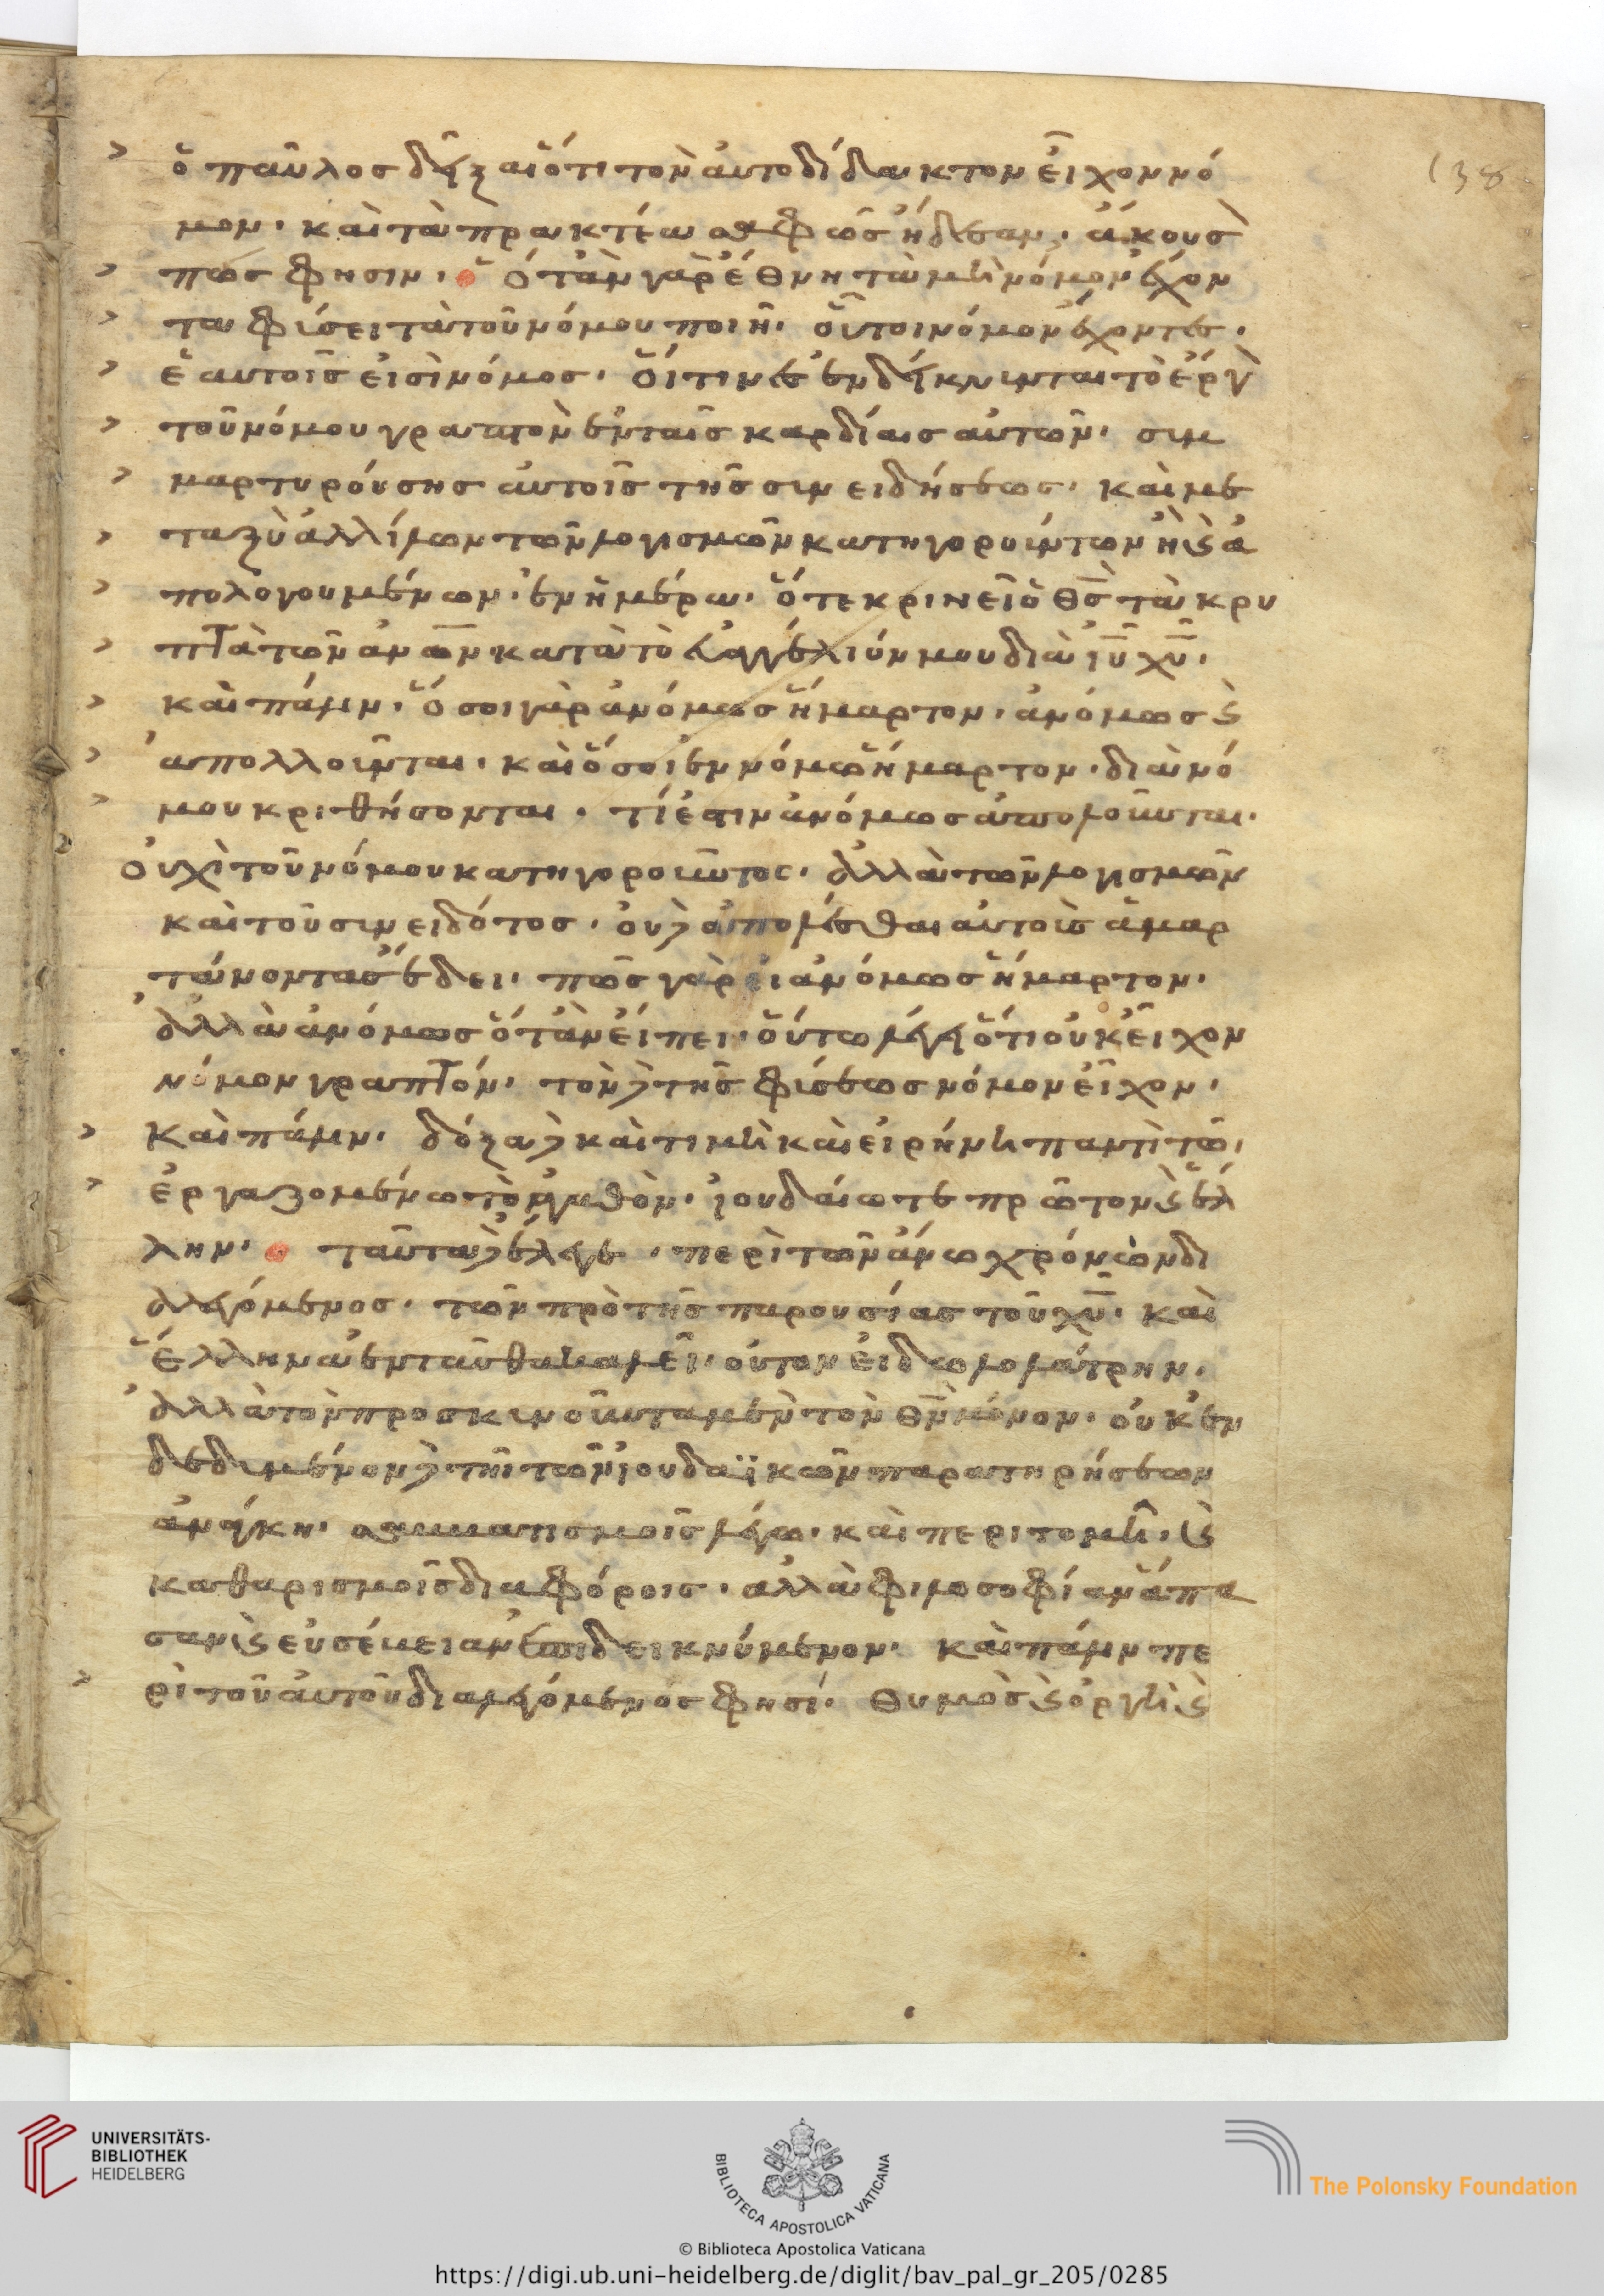 138
ὁ παῦλος δεῖξαι ὅτι τὸν ἀυτοδίδακτον εἶχον νό
μον· καὶ τὰ πρακτέα σαφῶς ἤδεσαν· ἄκουσον
πῶς φησιν· Ὅταν γὰρ ἔθνη τὰ μὴ νόμον ἔχον
τα φύσει τὰ τοῦ νόμου ποιῆ· οὗτοι νόμον ἔχοντες·
ἑαυτοῖς εἰσὶ νόμος· Οἵτινες ἐνδείκνυνται τὸ ἔργον
τοῦ νόμου γραπτὸν ἐν ταῖς καρδίαις αὐτῶν· συμ
μαρτυρούσης αὐτοῖς τῆς συνειδήσεως· καὶ με
ταξὺ ἀλλήλων τῶν λογισμῶν κατηγορούντων ἢ καὶ ἀ
πολογουμένων· ἐν ἡμέρα· ὅτε κρινεῖ ὁ θς τὰ κρυ
πτὰ τῶν ανων κατὰ τὸ ἐυαγγέλιόν μου διὰ ιυ χυ·
καὶ πάλιν· ὅσοι γὰρ ἀνόμως ἥμαρτον· ἀνόμως καὶ
ἀπολλοῦνται· καὶ ὅσοι ἐν νόμω ἥμαρτον· διὰ νό
μου κριθήσονται· τί ἐστιν ἀνόμως ἀπολοῦνται·
Οὐχὶ τοῦ νόμου κατηγοροῦντος· ἀλλὰ τῶν λογισμῶν
καὶ τοῦ συνειδότος· οὐδὲ ἀπολέσθαι αὐτοὺς ἁμαρ
τάνοντας ἔδει· πῶς γὰρ εἰ ἀνόμως ἥμαρτον·
ἀλλὰ ἀνόμως ὅταν εἴπει· οὕτω λέγει ὅτι οὐκ εἶχον
νόμον γραπτόν· τὸν δὲ τῆς φύσεως νόμον εἶχον·
Καὶ πάλιν· δόξα δὲ καὶ τιμὴ καὶ εἰρήνη παντὶ τῶ
ἐργαζομένω τὸ ἀγαθὸν· ἰουδαίω τε πρῶτον καὶ ἕλ
λην· ταῦτα δὲ ἔλεγε· περὶ τῶν ἄνω χρόνων δι
αλεγόμενος· τῶν πρὸ τῆς παρουσίας τοῦ χυ· καὶ
Ἕλληνα ἐνταῦθα καλεῖ· οὐ τὸν εἰδωλολάτρην·
ἀλλὰ τὸν προσκυνοῦντα μὲν τὸν θν μόνον· οὐκ ἐν
δεδεμένον δὲ τῆ τῶν ἰουδαϊκῶν παρατηρήσεων
ἀνάγκη· σαββατισμοῖς λέγω· καὶ περιτομῆ· καὶ
καθαρισμοῖς διαφόροις· ἀλλὰ φιλοσοφίαν ἅπα
σαν καὶ εὐσέβειαν ἐπιδεικνύμενον· Καὶ πάλιν πε
ρὶ τοῦ αὐτοῦ διαλεγόμενος φησί· Θυμὸς καὶ ὀργὴ καὶ
UNIVERSITÄTS-
BIBLIOTHEK
HEIDELBERG
BIBLIOTECA APOSTOLICA VATICANA
The Polonsky Foundation
© Biblioteca Apostolica Vaticana
https://digi.ub.uni-heidelberg.de/diglit/bav_pal_gr_205/0285